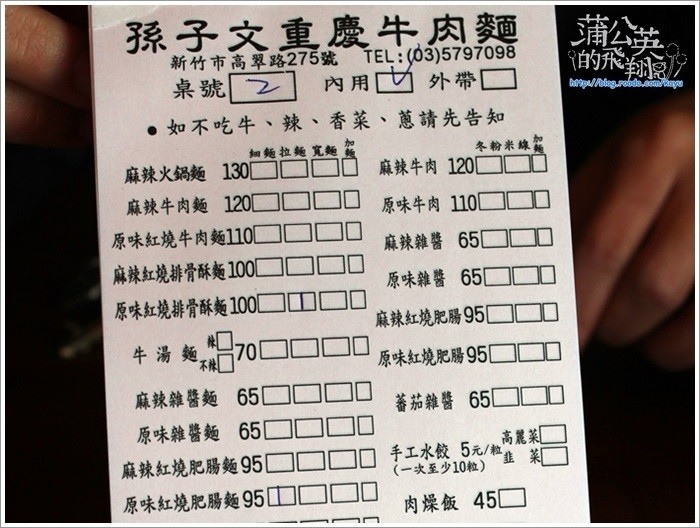 孫子文重慶牛肉麵
新竹市高翠路275號 TEL:(03)5797098
桌號 2 內用 ✓ 外帶
●如不吃牛、辣、香菜、蔥請先告知
細麵 拉麵 寬麵 加麵
麻辣火鍋麵 130
麻辣牛肉麵 120
原味紅燒牛肉麵 110
麻辣紅燒排骨酥麵 100
原味紅燒排骨酥麵 100
牛湯麵 辣 不辣 70
麻辣雜醬麵 65
原味雜醬麵 65
麻辣紅燒肥腸麵 95
原味紅燒肥腸麵 95
冬粉 米線 加麵
麻辣牛肉 120
原味牛肉 110
麻辣雜醬 65
原味雜醬 65
麻辣紅燒肥腸 95
原味紅燒肥腸 95
蕃茄雜醬 65
手工水餃 5元/粒 高麗菜
(一次至少10粒) 韭菜
肉燥飯 45
蒲公英的飛翔
http://blog.roodo.com/kayu